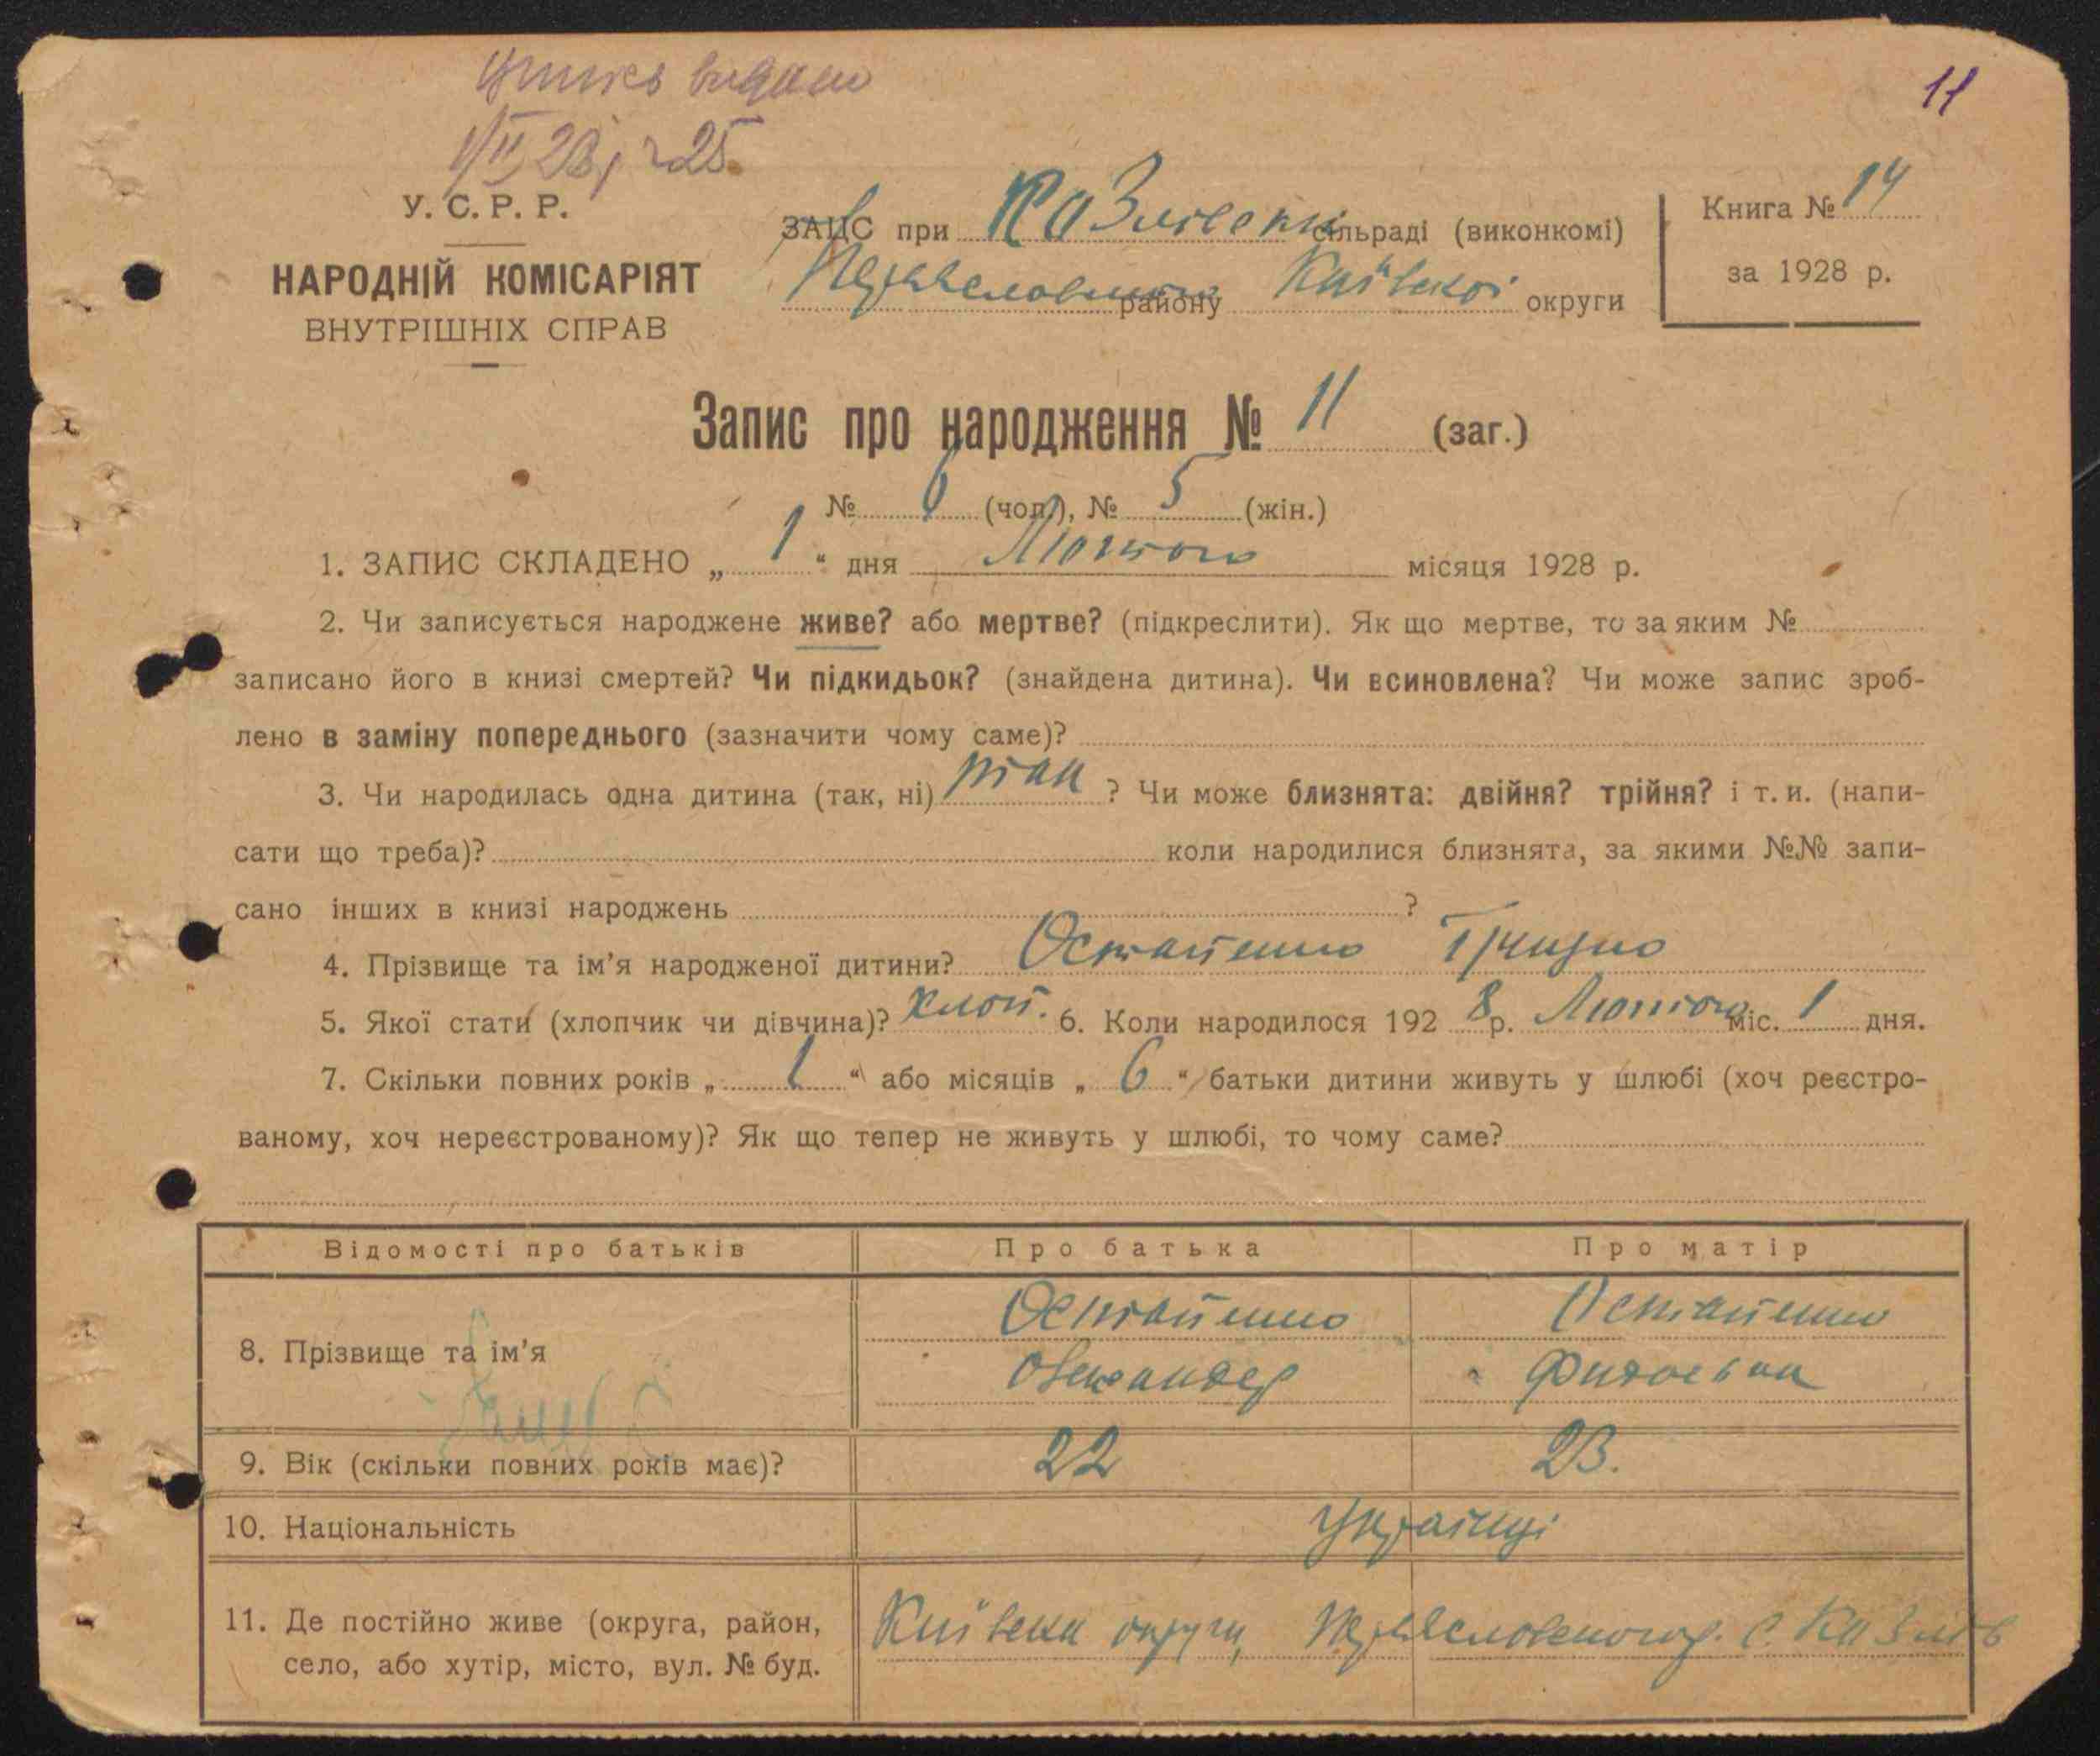 11
видано
1/II 28
У. С. Р. Р.
НАРОДНІЙ КОМІСАРІЯТ
ВНУТРІШНІХ СПРАВ
ЗАЦС при Казлівські сільраді (виконкомі)
району Київської округи
Книга № 14
за 1928 р.
Запис про народження № 11 (заг.)
№ 6 (чол.), № 5 (жін.)
1. ЗАПИС СКЛАДЕНО „ 1 “ дня Лютого місяця 1928 р.
2. Чи записується народжене живе? або мертве? (підкреслити). Як що мертве, то за яким №
записано його в книзі смертей? Чи підкидьок? (знайдена дитина). Чи всиновлена? Чи може запис зроб-
лено в заміну попереднього (зазначити чому саме)?
3. Чи народилась одна дитина (так, ні) так ? Чи може близнята: двійня? трійня? і т. и. (напи-
сати що треба)? коли народилися близнята, за якими №№ запи-
сано інших в книзі народжень ?
4. Прізвище та ім’я народженої дитини? Остапенко
5. Якої статі (хлопчик чи дівчина)? хлоп. 6. Коли народилося 192 8 р. Лютого міс. 1 дня.
7. Скільки повних років „ 1 “ або місяців „ 6 “ батьки дитини живуть у шлюбі (хоч реєстро-
ваному, хоч нереєстрованому)? Як що тепер не живуть у шлюбі, то чому саме?
Відомості про батьків Про батька Про матір
8. Прізвище та ім’я Остапенко Остапенко
Олександер
9. Вік (скільки повних років має)? 22 23.
10. Національність Українці
11. Де постійно живе (округа, район, Київська округа, с. Казлів
село, або хутір, місто, вул. № буд.